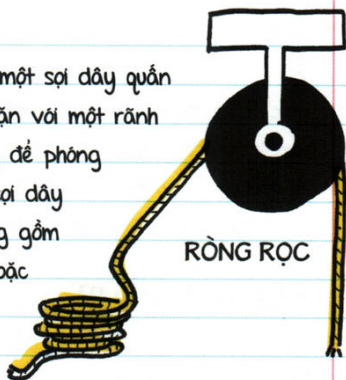 một sợi dây quấn
với một rãnh
để phóng
sợi dây
gồm
RÒNG RỌC